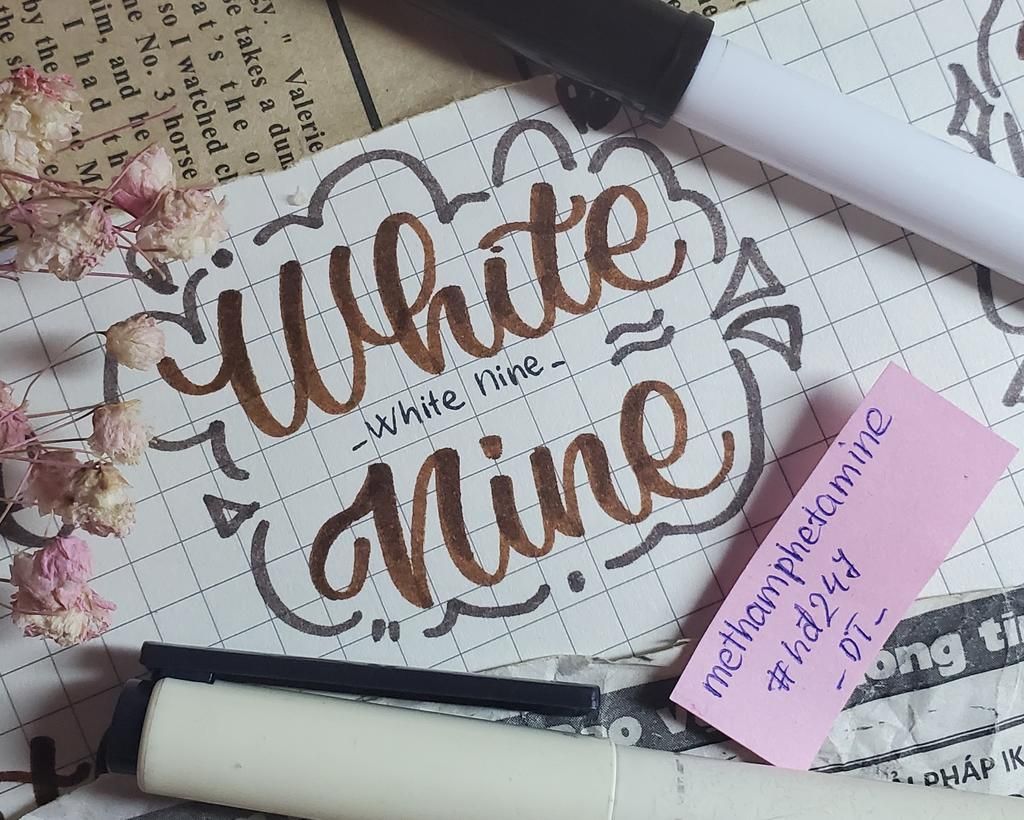 gy," Valerie
se takes a dun
at's the o
so I watched cl
ne No. 3 horse
him, and he
I had th
by the
the si
White
-White nine-
Nine
methamphetamine
#hd24y
-DT-
ong tin
PHÁP IK